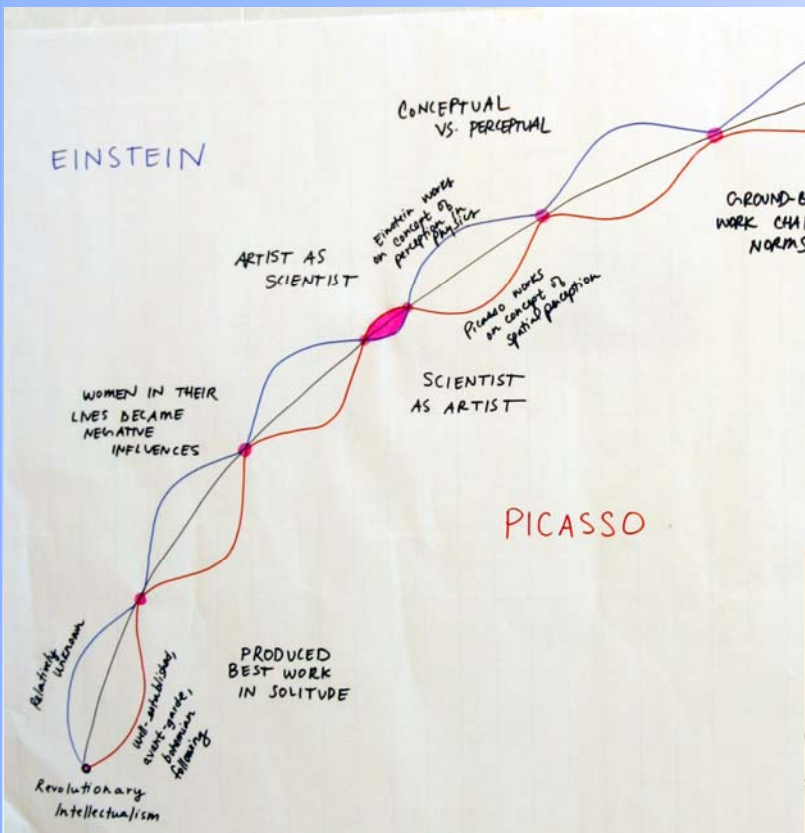 EINSTEIN
CONCEPTUAL
VS. PERCEPTUAL
Einstein works
on concept of
perception in
physics
GROUND-B
WORK CHA
NORMS
ARTIST AS
SCIENTIST
Picasso works
on concept of
spatial perception
SCIENTIST
AS ARTIST
WOMEN IN THEIR
LIVES BECAME
NEGATIVE
INFLUENCES
PICASSO
PRODUCED
BEST WORK
IN SOLITUDE
Relatively
unknown
well-established,
avant-garde,
bohemian
following
Revolutionary
Intellectualism